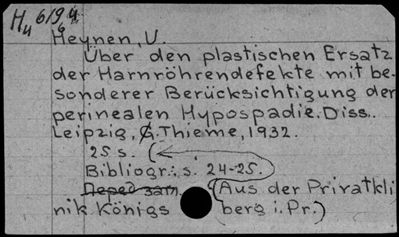 H4 6/94
6
Heynen, U.
Über den plastischen Ersatz
der Harnröhrendefekte mit be-
sonderer Berücksichtigung der
perinealen Hypospadie. Diss.
Leipzig, G. Thieme, 1932.
25 s.
Bibliogr.: s. 24-25.
Перед загл. (Aus der Privatkli
nik Königs berg i. Pr.)